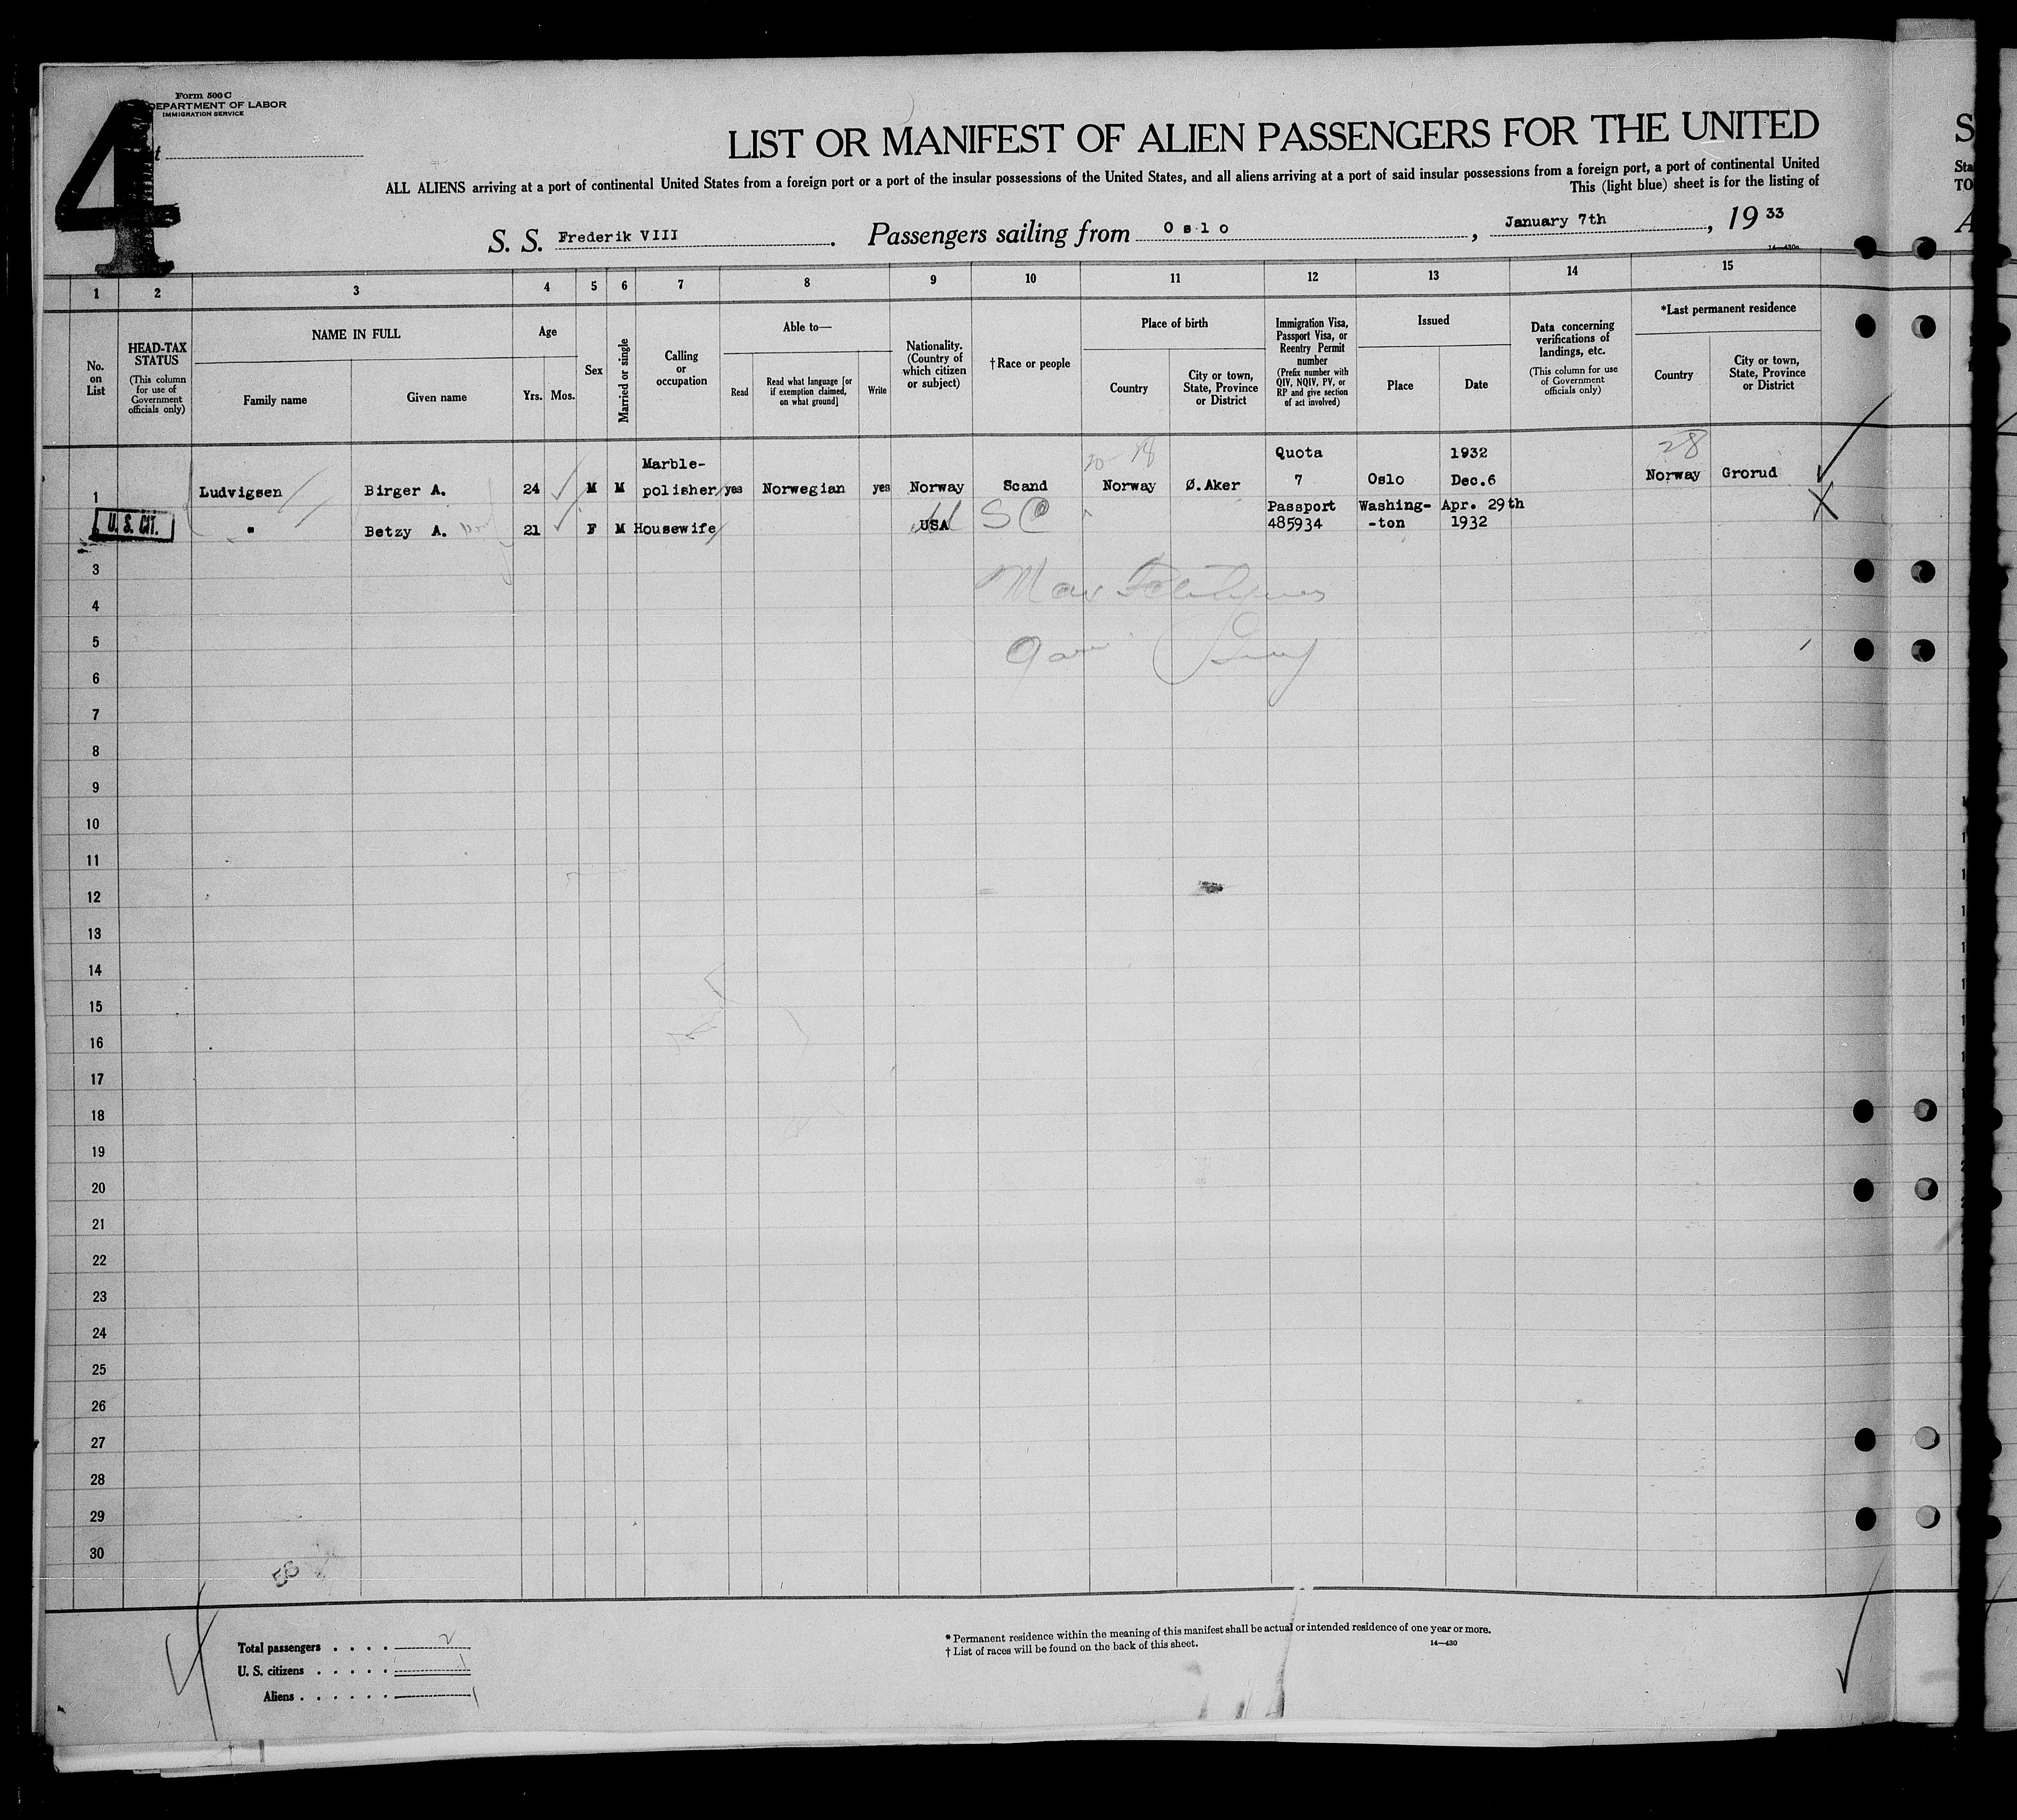 4
Form 500 C
DEPARTMENT OF LABOR
IMMIGRATION SERVICE
LIST OR MANIFEST OF ALIEN PASSENGERS FOR THE UNITED
ALL ALIENS arriving at a port of continental United States from a foreign port or a port of the insular possessions of the United States, and all aliens arriving at a port of said insular possessions from a foreign port, a port of continental United
This (light blue) sheet is for the listing of
S. S. Frederik VIII. Passengers sailing from Oslo, January 7th, 19 33
1 2 3 4 5 6 7 8 9 10 11 12 13 14 15
No. on List
HEAD-TAX STATUS
(This column for use of Government officials only)
NAME IN FULL
Family name
Given name
Age
Yrs. Mos.
Sex
Married or single
Calling or occupation
Able to—
Read
Read what language [or if exemption claimed, on what ground]
Write
Nationality. (Country of which citizen or subject)
†Race or people
Place of birth
Country
City or town, State, Province or District
Immigration Visa, Passport Visa, or Reentry Permit number
(Prefix number with QIV, NQIV, PV, or RP and give section of act involved)
Issued
Place
Date
Data concerning verifications of landings, etc.
(This column for use of Government officials only)
*Last permanent residence
Country
City or town, State, Province or District
Marble- Quota 1932 28
1 Ludvigsen Birger A. 24 M M polisher yes Norwegian yes Norway Scand Norway Ø.Aker 7 Oslo Dec.6 Norway Grorud
Passport Washing- Apr. 29th
U. S. CIT. " Betzy A. 21 F M Housewife USA SC 485934 -ton 1932
3
4
5
6
7
8
9
10
11
12
13
14
15
16
17
18
19
20
21
22
23
24
25
26
27
28
29
30
Total passengers . . . . 2
U. S. citizens . . . . . 1
Aliens . . . . . . 1
* Permanent residence within the meaning of this manifest shall be actual or intended residence of one year or more.
† List of races will be found on the back of this sheet.
14—430